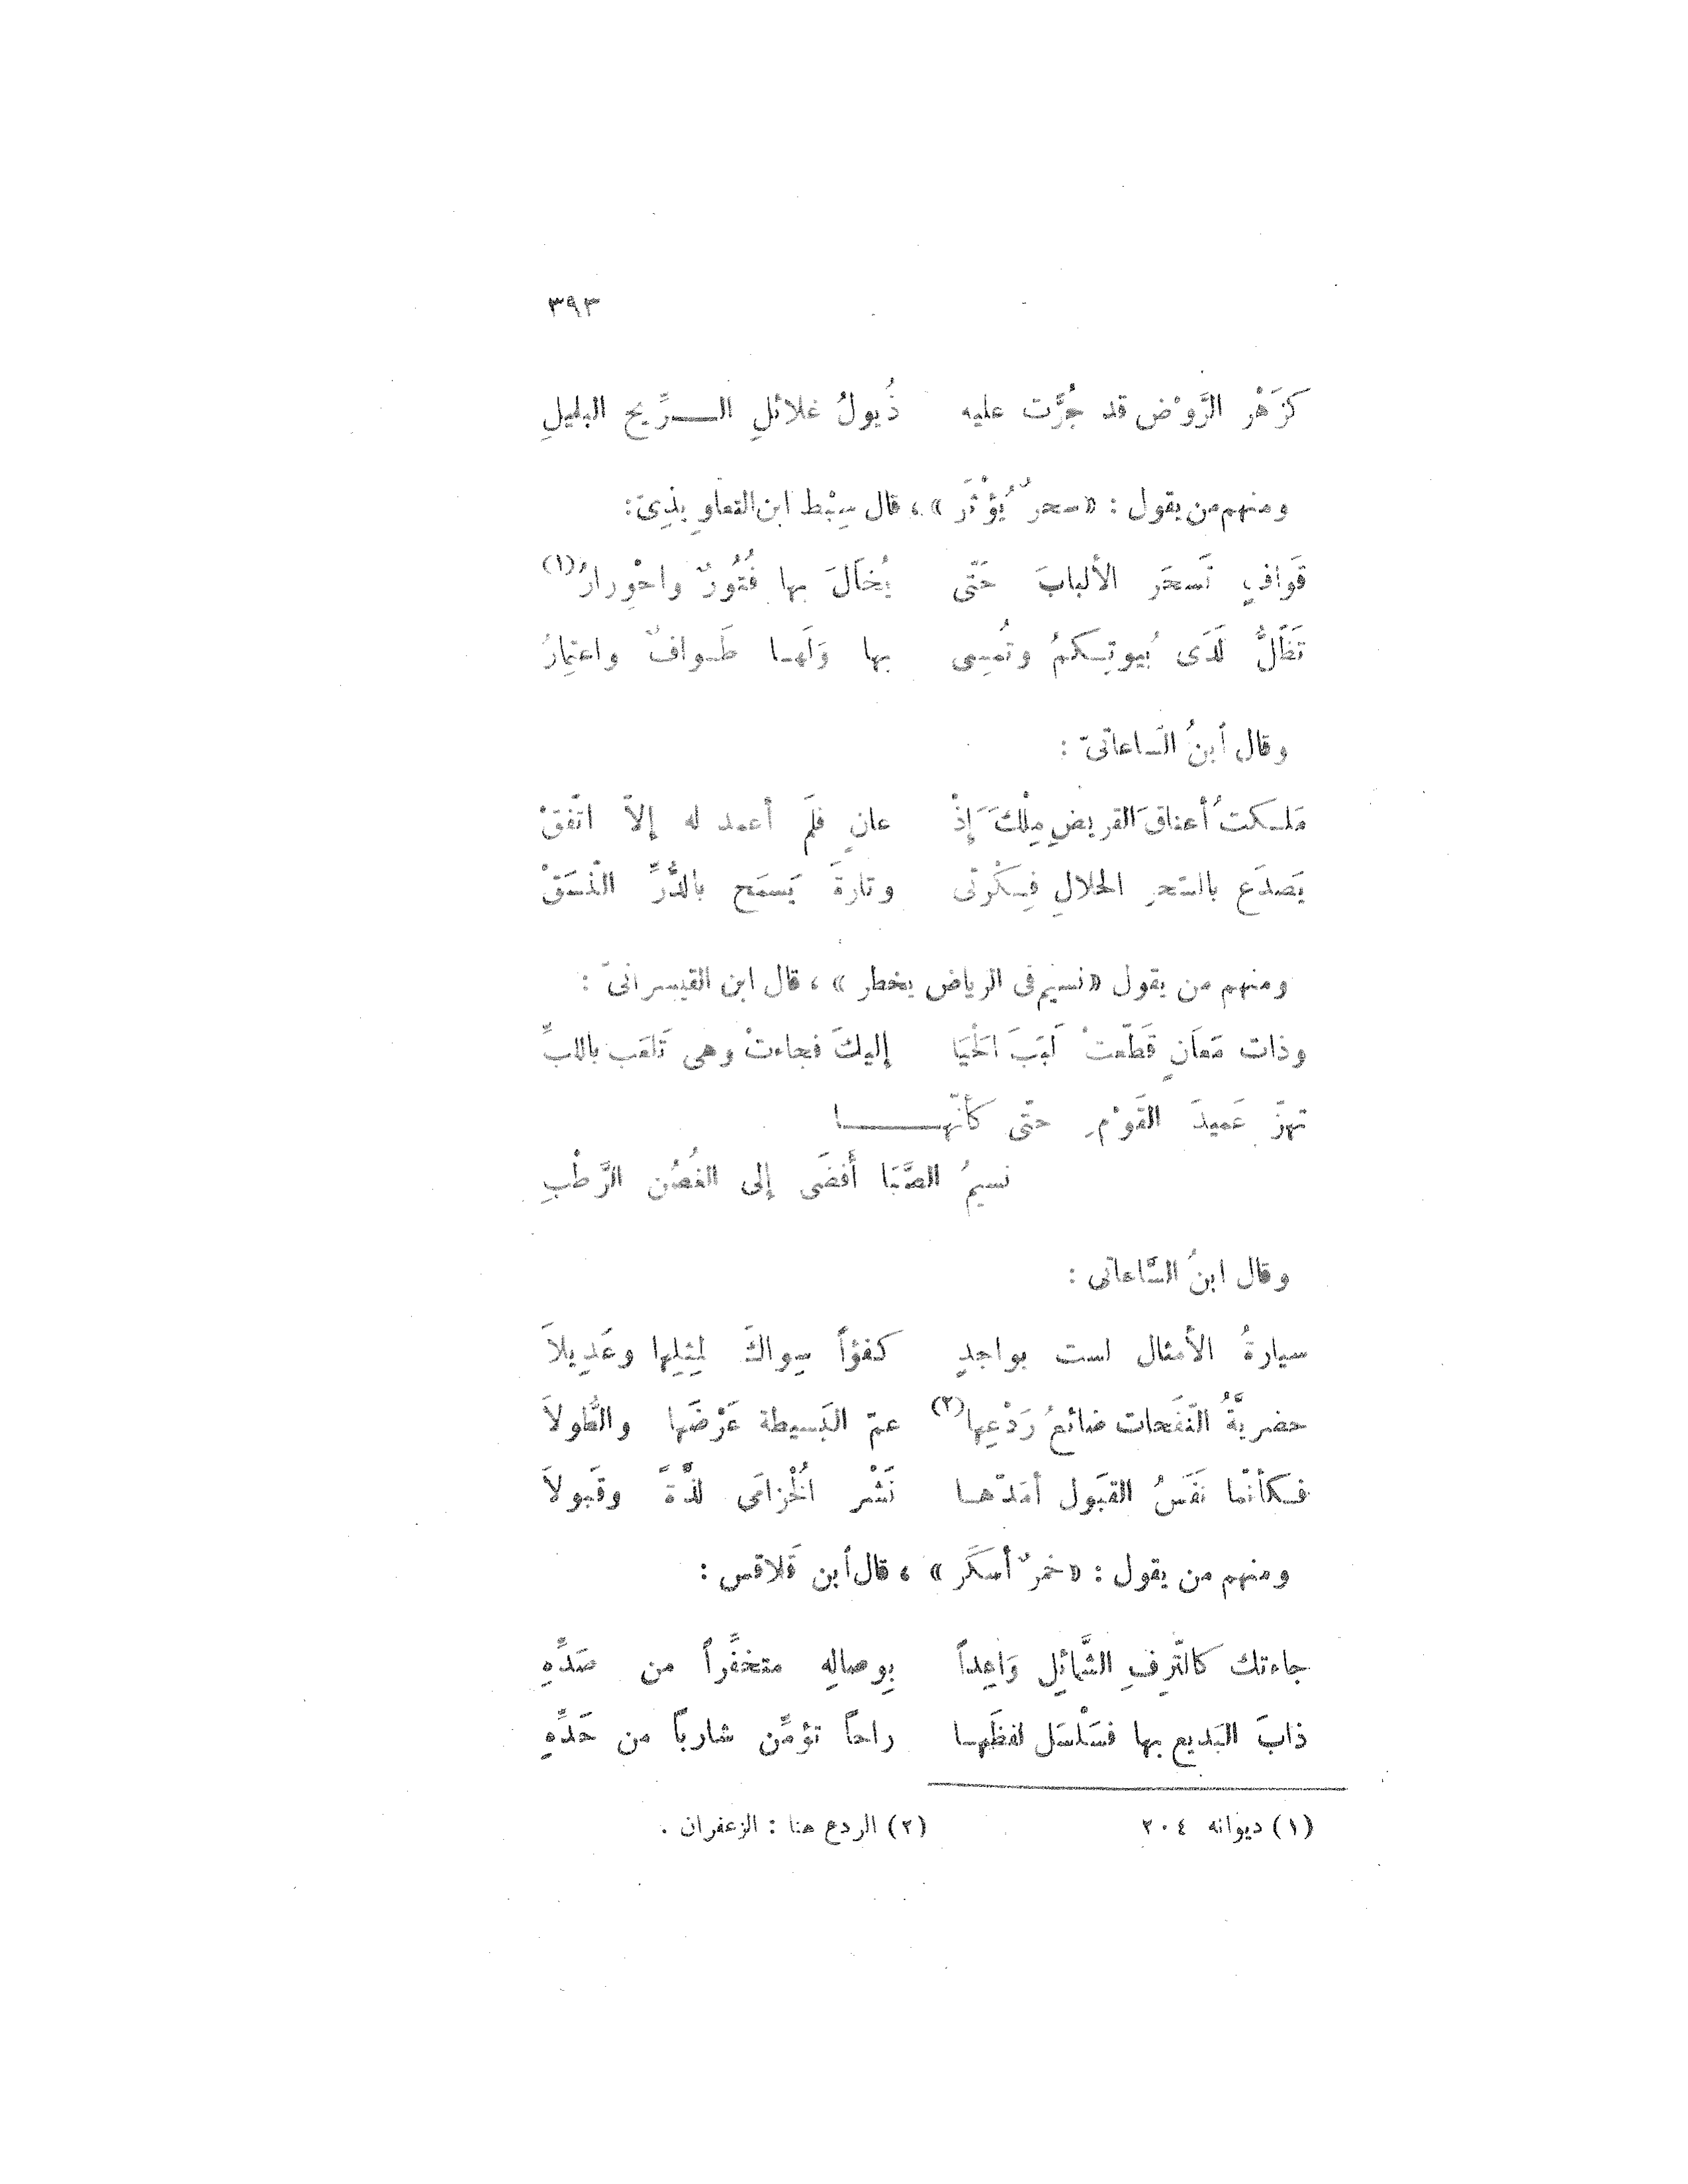 ٣٩٣
كزَهْر الرَّوْض قد جُرَّت عليه ذُيولُ غلائلِ الـــرِّيح البليلِ
ومنهم من يقول : « سحرٌ يُؤْثَر » ، قال سِبْط ابن التعاويذىّ :
قَوافٍ تَسحَر الألبابَ حَتّى يُخالَ بها فُتُورٌ واحْوِرارُ(١)
تَظَلُّ لَدَى بُيوتِكمُ وتُمسِى بها وَلَها طَوافٌ واعتِمارُ
وقال أبنُ السّاعاتىّ :
مَلكتُ أعناقَ القريضِ مِلْكَ إذْ عانٍ فلَم أعمد له إلاّ اتّفقْ
يَصدَع بالسّحر الحلالِ فِكْرتى وتارةَ يَسمَح بالدُّرِّ النّسَقْ
ومنهم من يقول « نسيم فى الرياض يخطر » ، قال ابن القيسرانىّ :
وذات مَعاَنٍ قَطّعتْ لَبَبَ الحَيَا إليكَ فجاءتْ وهى تَلعَب باللبِّ
تهزّ عَميدَ القَوْمِ حتّى كأنّهـــا
نسيمُ الصَّبَا أَفضَى إلى الغُصُن الرَّطْبِ
وقال ابنُ السَّاعاتى :
سيارةُ الأمثال لست بواجدٍ كفؤاً سِواكَ لِمِثلِها وعَدِيلاَ
حضريَّةُ النّفَحات ضائعُ رَدْعِها(٢) عمّ البَسيطة عَرْضَها والطُّولاَ
فكأنّما نَفَسُ القبَول أمَدّها نَشْر الخُزامَى لذّةً وقَبولاَ
ومنهم من يقول : « خمرٌ أسكَر » ، قال أبن قَلاقس :
جاءتك كالتّرِفِ الشَّمائِلِ وَاعِداً بِوصالِهِ متخفِّراً من صَدِّهِ
ذابَ البَديع بها فسَلْسَل لفظَها راحاً تؤمِّن شارباً من حَدِّهِ
(١) ديوانه ٢٠٤ (٢) الردع هنا : الزعفران .